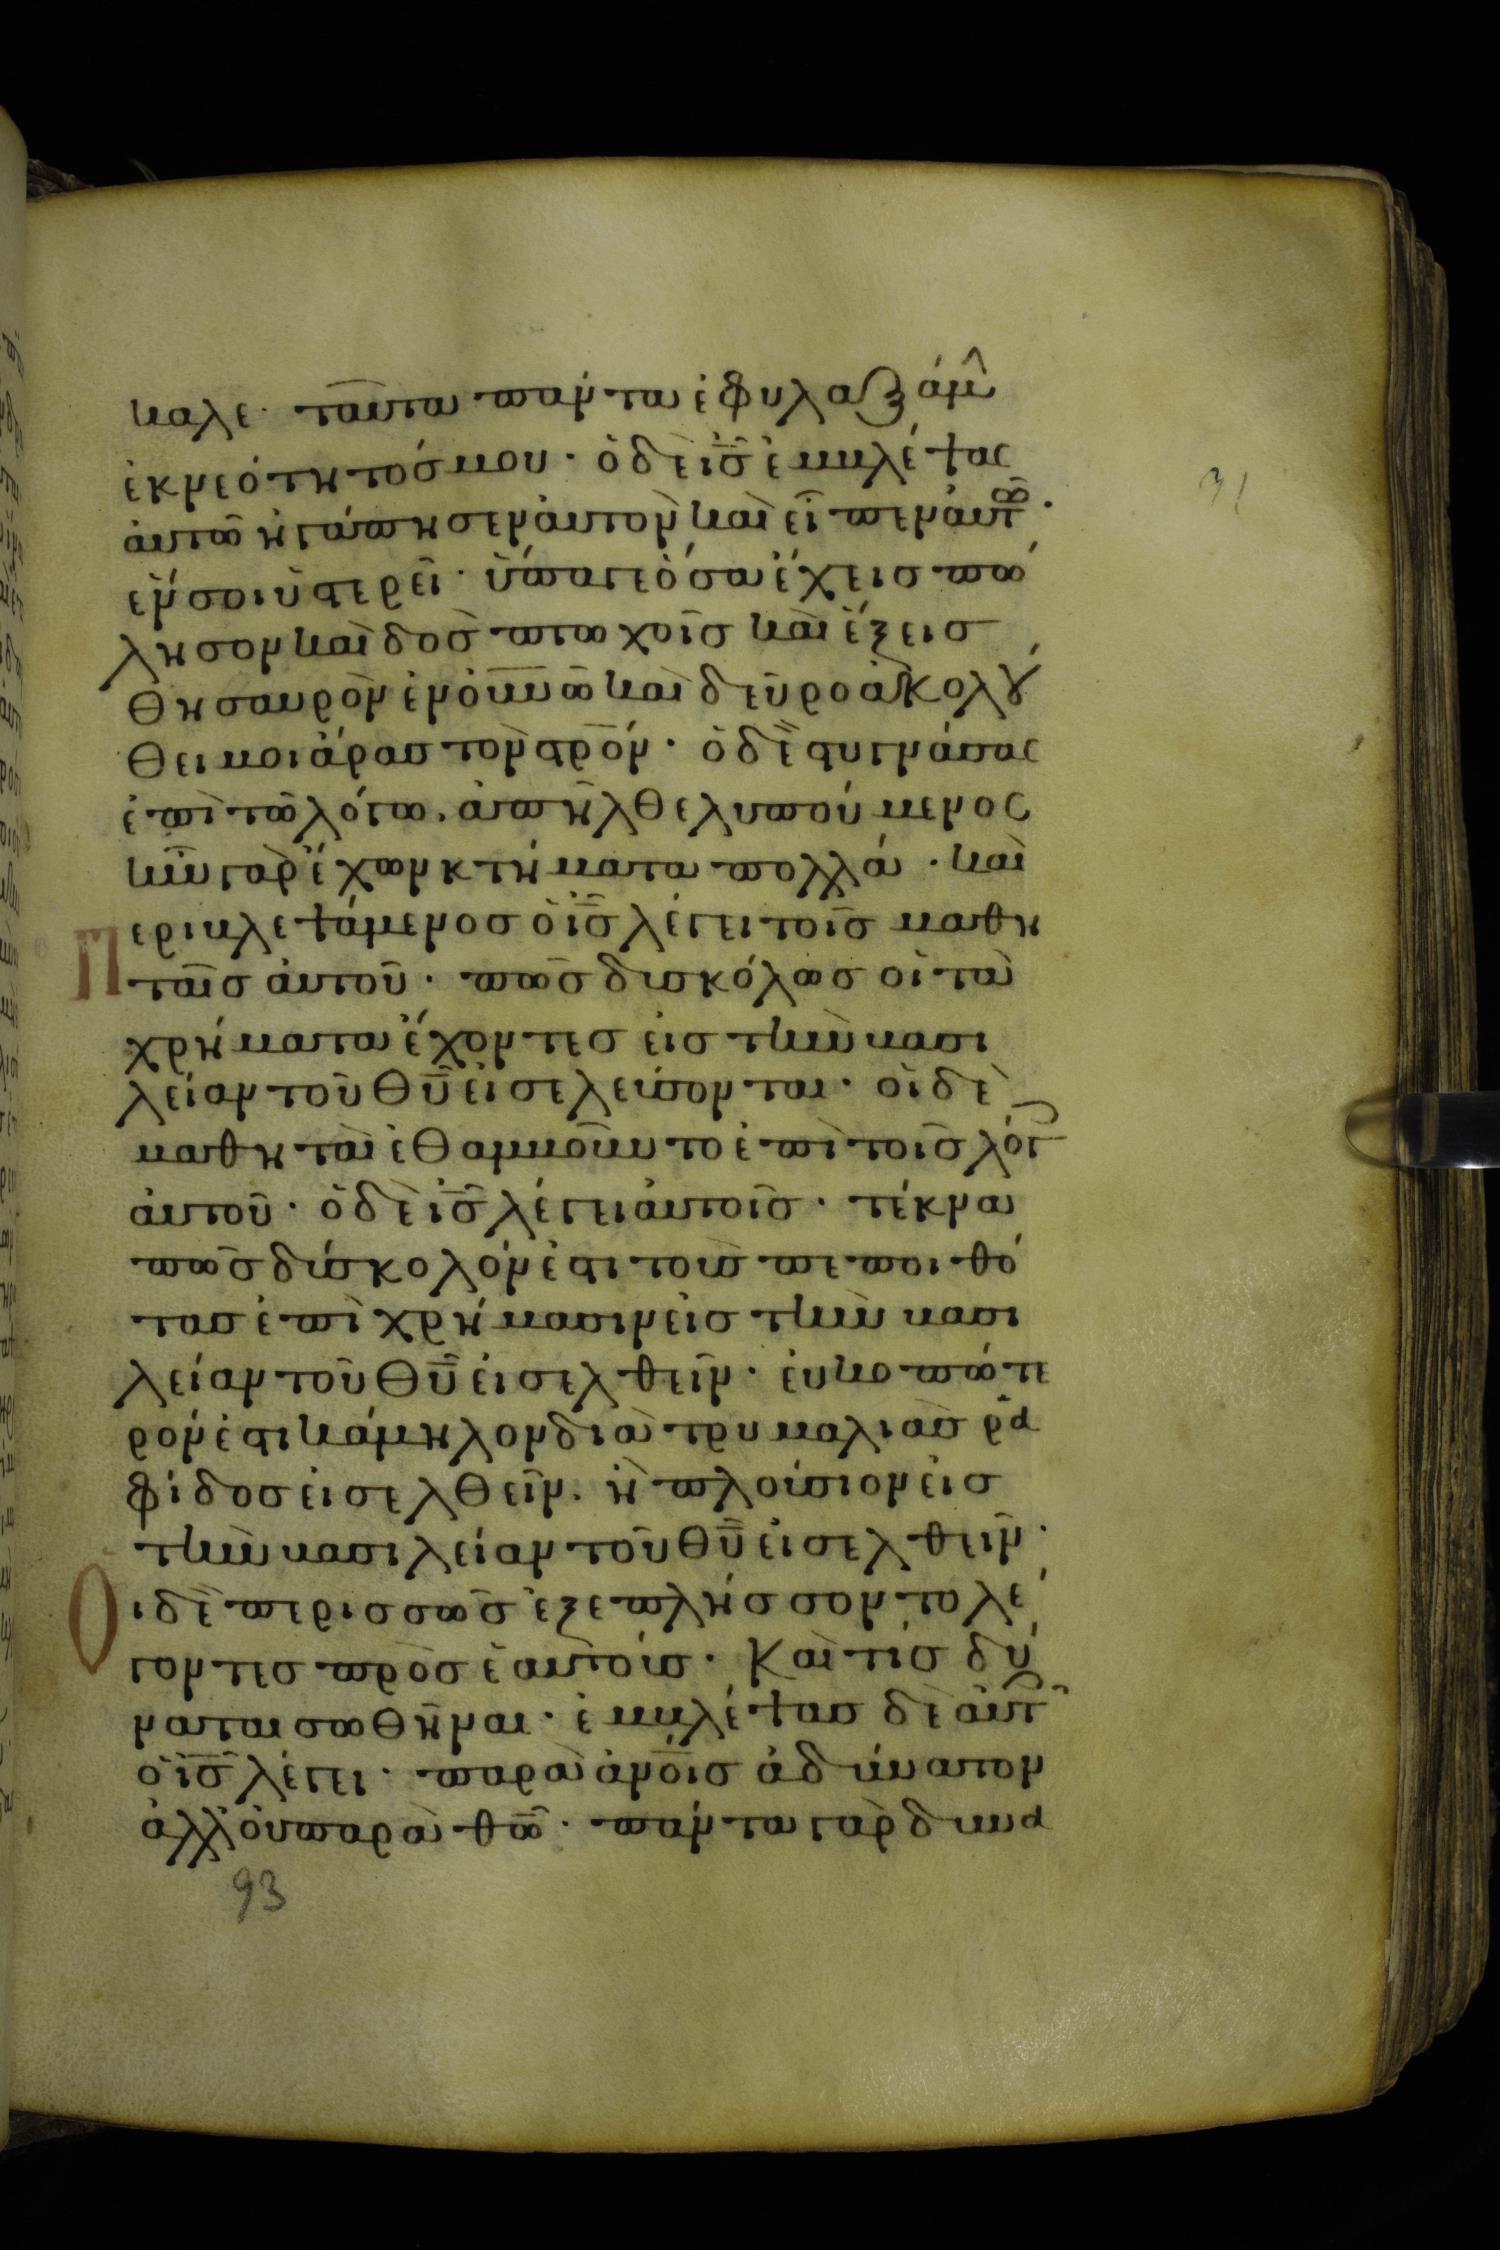 καλε· ταῦτα πάντα ἐφυλαξάμ
ἐκ νεότητός μου· ὁ δὲ ις ἐμβλέψας
αὐτῶ ἠγάπησεν αὐτὸν καὶ εἶπεν αὐτῶ·
ἕν σοι ὑστερεῖ· ὕπαγε ὅσα ἔχεις πώ
λησον καὶ δὸς πτωχοῖς καὶ ἕξεις
θησαυρὸν ἐν οὐνῶ καὶ δεῦρο ἀκολού
θει μοι ἄρας τὸν στρόν· ὁ δὲ στυγνάσας
ἐπὶ τῶ λόγω, ἀπῆλθε λυπούμενος
ἦν γὰρ ἔχων κτήματα πολλά· καὶ
Περιβλεψάμενος ὁ ις λέγει τοῖς μαθη
ταῖς αὐτοῦ· πῶς δυσκόλως οἱ τὰ
χρήματα ἔχοντες εἰς τὴν βασι
λείαν τοῦ θυ εἰσελεύσονται· οἱ δὲ
μαθηταὶ ἐθαμβοῦντο ἐπὶ τοῖς λόγ
αὐτοῦ· ὁ δὲ ις λέγει αὐτοῖς· τέκνα
πῶς δύσκολόν ἐστι τοὺς πεποιθό
τας ἐπὶ χρήμασιν εἰς τὴν βασι
λείαν τοῦ θυ εἰσελθεῖν· εὐκοπώτε
ρόν ἐστι κάμηλον διὰ τρυμαλιᾶς ρα
φίδος εἰσελθεῖν. ἢ πλούσιον εἰς
τὴν βασιλείαν τοῦ θυ εἰσελθεῖν·
Οἱ δὲ περισσῶς ἐξεπλήσσοντο λέ
γοντες πρὸς ἑαυτούς· Καὶ τίς δύ
ναται σωθῆναι· ἐμβλέψας δὲ αὐτ
ὁ ις λέγει· παρὰ ἀνοις ἀδύνατον
ἀλλ' οὐ παρὰ θω· πάντα γὰρ δυνα
93
31